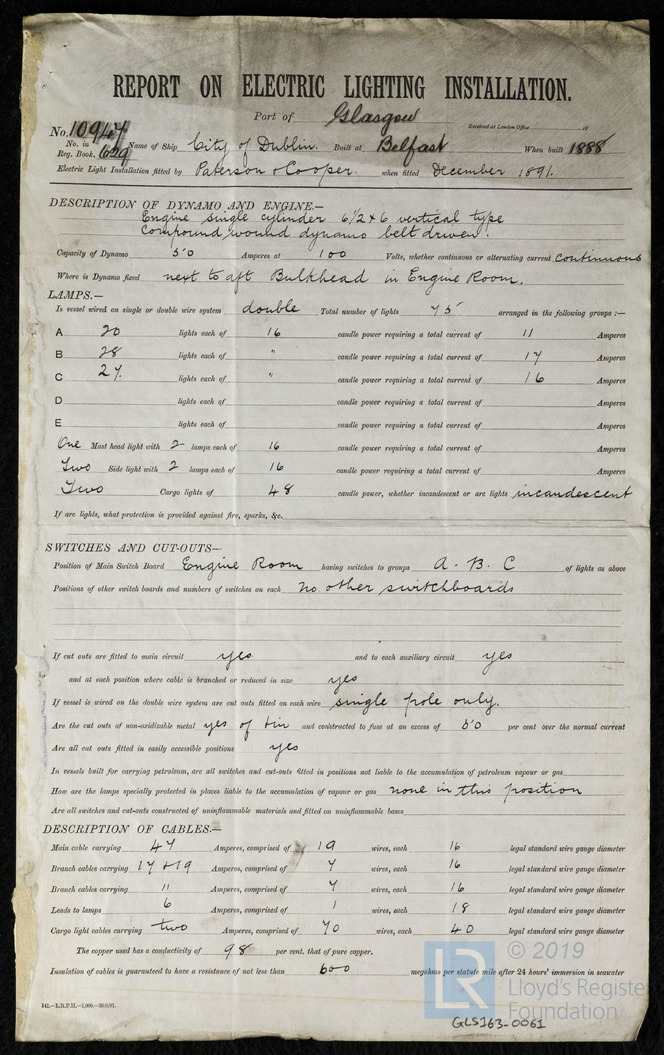 REPORT ON ELECTRIC LIGHTING INSTALLATION.
Port of Glasgow Received at London Office 18
No. 10947
No. in Reg. Book. 629 Name of Ship City of Dublin. Built at Belfast When built 1888
Electric Light Installation fitted by Paterson & Cooper. when fitted December 1891.
DESCRIPTION OF DYNAMO AND ENGINE.—
Engine single cylinder 6 1/2 x 6 vertical type
Compound wound dynamo belt driven.
Capacity of Dynamo 50 Amperes at 100 Volts, whether continuous or alternating current continuous
Where is Dynamo fixed next to aft Bulkhead in Engine Room.
LAMPS.—
Is vessel wired on single or double wire system double Total number of lights 75 arranged in the following groups :—
A 20 lights each of 16 candle power requiring a total current of 11 Amperes
B 28 lights each of " candle power requiring a total current of 17 Amperes
C 27. lights each of " candle power requiring a total current of 16 Amperes
D lights each of candle power requiring a total current of Amperes
E lights each of candle power requiring a total current of Amperes
One Mast head light with 2 lamps each of 16 candle power requiring a total current of Amperes
Two Side light with 2 lamps each of 16 candle power requiring a total current of Amperes
Two Cargo lights of 48 candle power, whether incandescent or arc lights incandescent
If arc lights, what protection is provided against fire, sparks, &c.
SWITCHES AND CUT-OUTS—
Position of Main Switch Board Engine Room having switches to groups A. B. C of lights as above
Positions of other switch boards and numbers of switches on each no other switchboards
If cut outs are fitted to main circuit yes and to each auxiliary circuit yes
and at each position where cable is branched or reduced in size yes
If vessel is wired on the double wire system are cut outs fitted on each wire single pole only.
Are the cut outs of non-oxidizable metal yes of tin and constructed to fuse at an excess of 50 per cent over the normal current
Are all cut outs fitted in easily accessible positions yes
In vessels built for carrying petroleum, are all switches and cut-outs fitted in positions not liable to the accumulation of petroleum vapour or gas
How are the lamps specially protected in places liable to the accumulation of vapour or gas none in this position
Are all switches and cut-outs constructed of uninflammable materials and fitted on uninflammable bases
DESCRIPTION OF CABLES.—
Main cable carrying 47 Amperes, comprised of 19 wires, each 16 legal standard wire gauge diameter
Branch cables carrying 17 & 19 Amperes, comprised of 7 wires, each 16 legal standard wire gauge diameter
Branch cables carrying 11 Amperes, comprised of 7 wires, each 16 legal standard wire gauge diameter
Leads to lamps 6 Amperes, comprised of 1 wires, each 18 legal standard wire gauge diameter
Cargo light cables carrying two Amperes, comprised of 70 wires, each 40 legal standard wire gauge diameter
The copper used has a conductivity of 98 per cent. that of pure copper.
Insulation of cables is guaranteed to have a resistance of not less than 600 megohms per statute mile after 24 hours' immersion in seawater
© 2019
LR Lloyd's Register
Foundation
GLS163-0061